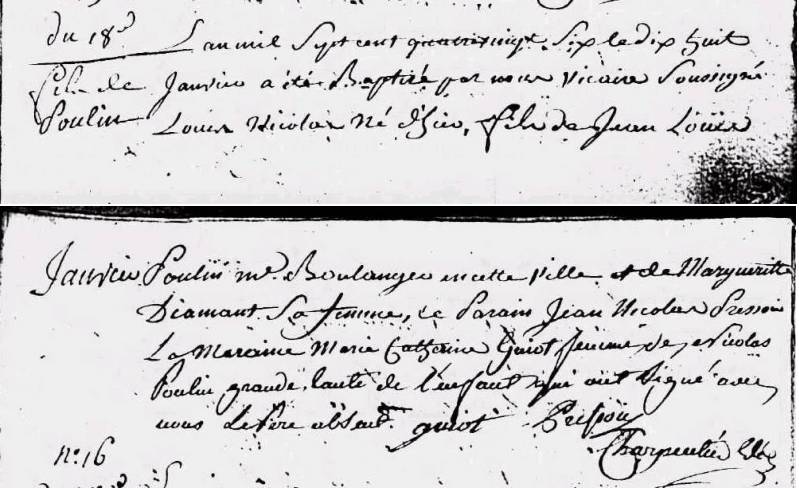 du 18e L'an mil Sept cent quatrevingt Six le dix huit
fils de Janvier a été Baptisé par nous Vicaire Soussigné
Poulin Louis Nicolas Né d'hier, fils de Jean Louis
Janvier Poulin me. Boulanger en cette Ville et de Margueritte
Diamant Sa femme, Le Parain Jean Nicolas Pressoir
La Maraine Marie Catherine Guiot femme de Nicolas
Poulin grande tante de l'enfant qui ont Signé avec
nous Le Père absent. guiot
Charpentier
n.o 16